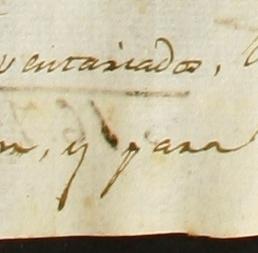 ventariados,
y para